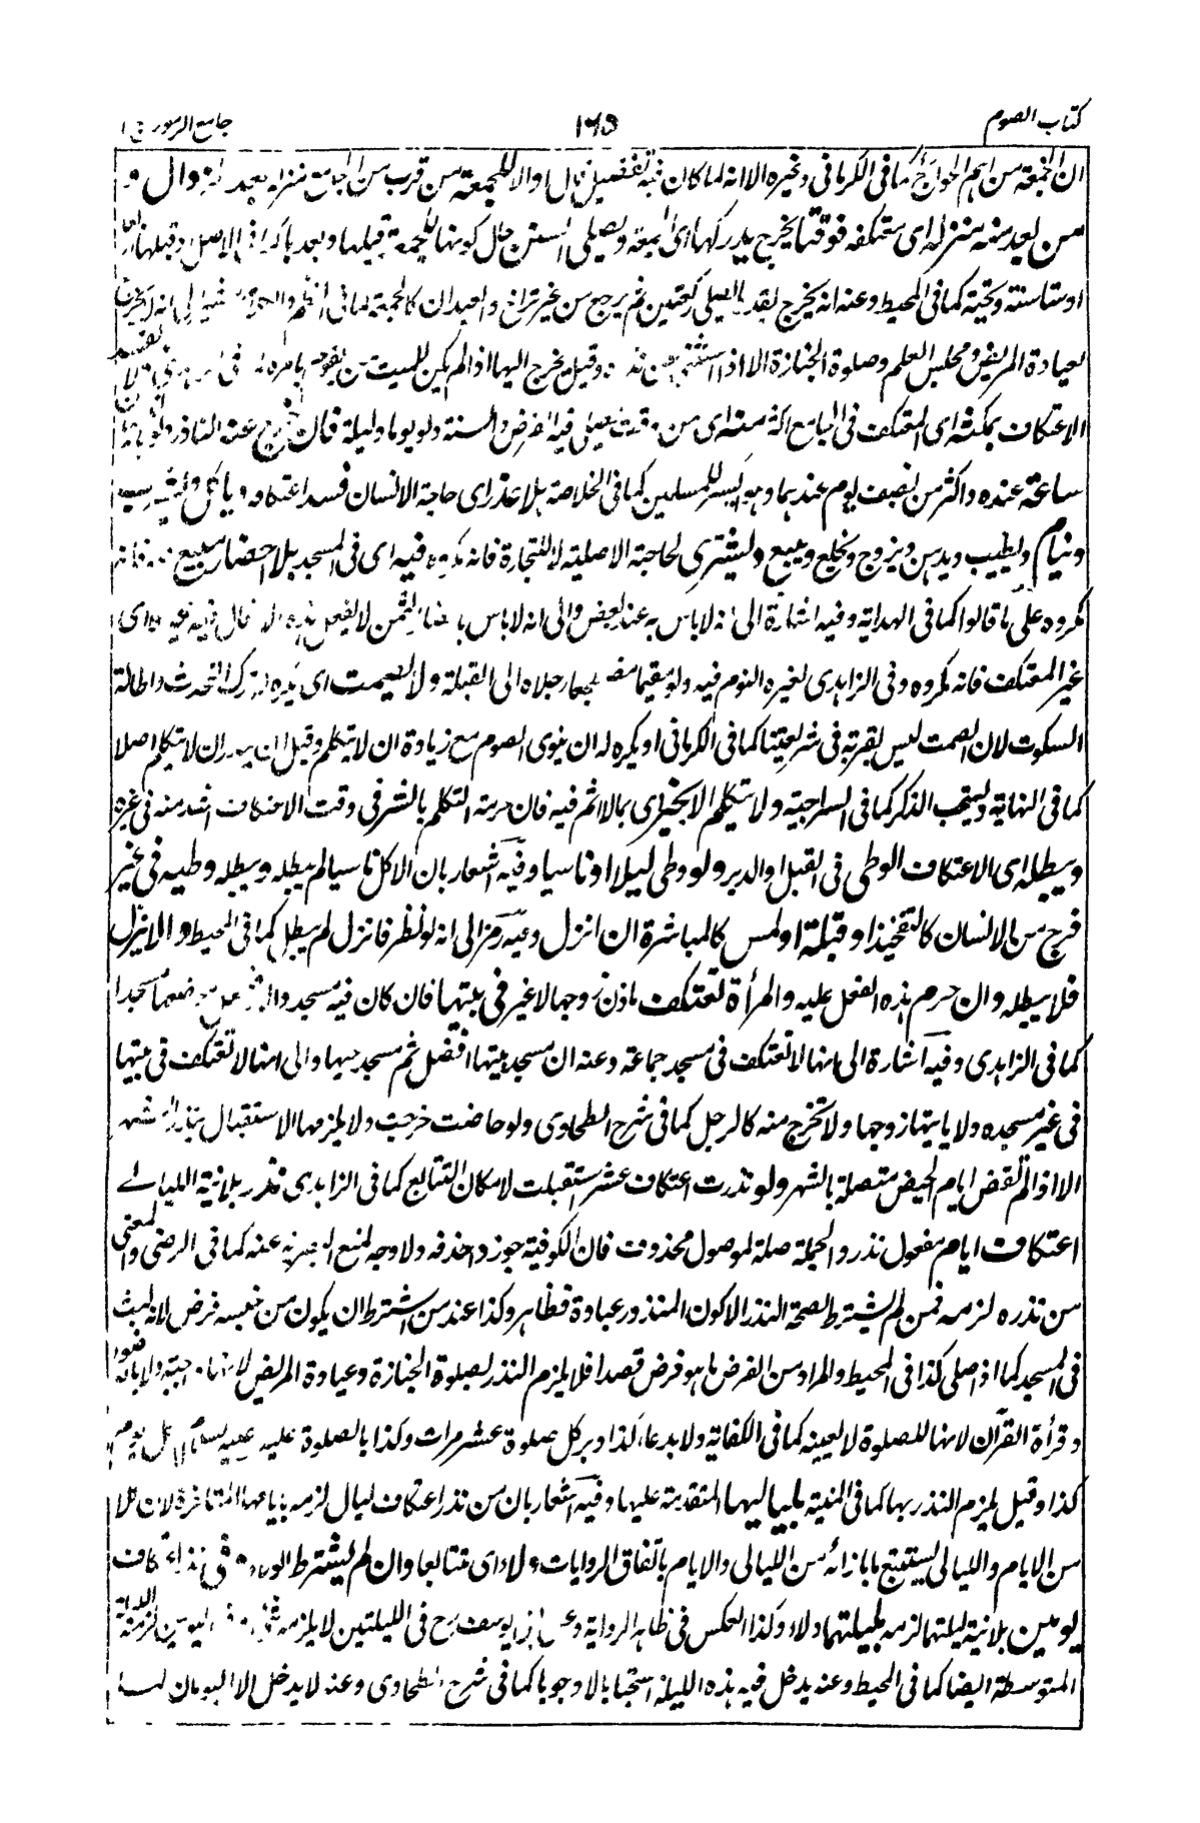 كتاب الصوم
١٦٥
جامع الرموز ج ١
ان الجمعة من اهم الحوائج كما فى الكرمانى وغيره الا انه لما كان فيه تفصيل قال او الا للجمعة من قرب من الجامع منزله بعد الزوال و
من بعد منه منزله اى معتكفه فوقتا يخرج يدركها اى الجمعة ويصلى السنن حال كونها للجمعة قبلها وبعدها كما فى الاصل وقبلها اربعا
او ستا سنة وتحية كما فى المحيط وعنه انه يخرج بقدر ما يصلى ركعتين ثم يرجع من غير تراخ والعيدان كالجمعة كما فى النظم
لعيادة المريض ومجلس العلم وصلوة الجنازة الا اذا استثنى وقيل يخرج اليها اذا لم يكن للميت من يقوم بامره
الاعتكاف بمكثه اى المعتكف فى الجامع اكثر منه اى من وقت يصلى فيه الفرض والسنة ولو يوما وليلة فان خرج عنه الناذر ولو ناسيا
ساعة عنده واكثر من نصف يوم عندهما وهو ايسر للمسلمين كما فى الخلاصة بلا عذر اى حاجة الانسان فسد اعتكافه وياكل ويشرب
وينام ويطيب ويدهن ويزوج ويخلع ويبيع ويشترى لحاجته الاصلية لا للتجارة فانه مكروه فيه اى فى المسجد بلا احضار مبيع فانه
مكروه على ما قالوا كما فى الهداية وفيه اشارة الى انه لا باس به عند البعض والى انه لا باس باحضار الثمن لا يفعل هذه الافعال فيه غيره اى
غير المعتكف فانه مكروه وفى الزاهدى لغيره النوم فيه ولو مقيما مضطجعا رجلاه الى القبلة ولا يصمت اى يكره له ترك التحدث واطالة
السكوت لان الصمت ليس بقربة فى شريعتنا كما فى الكرمانى او يكره له ان ينوى الصوم مع زيادة ان لا يتكلم وقيل ان ينذر ان لا يتكلم اصلا
كما فى النهاية ويستحب الذكر كما فى السراجية ولا يتكلم الا بخير اى بما لا اثم فيه فان حرمة التكلم بالشر فى وقت الاعتكاف اشد منه فى غيره
ويبطله اى الاعتكاف الوطى فى القبل او الدبر ولو وطى ليلا او ناسيا وفيه اشعار بان الاكل ناسيا لم يبطله ويبطله وطيه فى غير
فرج من الانسان كالتفخيذ او قبلة او لمس كالمباشرة ان انزل وفيه رمز الى انه لو نظر فانزل لم يبطل كما فى المحيط والا ينزل
فلا يبطله وان حرم هذه الفعل عليه والمرأة تعتكف باذن زوجها لا غير فى بيتها فان كان فيه مسجد والا فتجعل موضعا منه مسجدا
كما فى الزاهدى وفيه اشارة الى انها لا تعتكف فى مسجد جماعة وعنه ان مسجد بيتها افضل ثم مسجد حيها والى انها لا تعتكف فى بيتها
فى غير مسجده ولا ياتيها زوجها ولا تخرج منه كالرجل كما فى شرح الطحاوى ولو حاضت خرجت ولا يلزمها الاستقبال بنذر شهر
الا اذا لم تقض ايام الحيض متصلة بالشهر ولو نذرت اعتكاف عشر استقبلت لامكان التتابع كما فى الزاهدى نذر بلا نية الليالے
اعتكاف ايام مفعول نذر والجملة صلة لموصول محذوف فان الكوفية جوزوا حذفه ولا وجه لمنع البصرية عنه كما فى الرضى والمعنى
من نذره لزمه فمن لم يشترط لصحة النذر الا كون المنذور عبادة فظاهر وكذا عند من اشترط ان يكون من جنسه فرض لانه لبث
فى المسجد كما اذا صلى كذا فى المحيط والمراد من الفرض ما هو فرض قصدا فلا يلزم النذر بصلوة الجنازة وعيادة المريض
وقرأة القرآن لانها للصلوة لا لعينه كما فى الكفاية ولا بدعاء كذا دبر كل صلوة عشر مرات وكذا بالصلوة عليه عليه السلام كل يوم
كذا وقيل يلزم النذر بها كما فى المنية بلياليها المتقدمة عليها وفيه اشعار بان من نذر اعتكاف ليال لزمه بايامها المتاخرة لان كلا
من الايام والليالى يستتبع ما بازائه من الليالى والايام باتفاق الروايات ولاء اى متتابعا وان لم يشترط الولاء وفى نذر اعتكاف
يومين بلا نية ليلتها لزمه بليلتهما ولاء وكذا العكس فى ظاهر الرواية وعن ابى يوسف رح فى الليلتين لا يلزمه شئ وفى اليومين لزمه الليلة
المتوسطة ايضا كما فى المحيط وعنه يدخل فيه هذه الليلة استحبابا لا وجوبا كما فى شرح الطحاوى وعنه لا يدخل الا اليومان